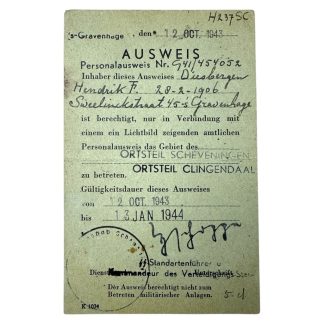 H237SC
's-Gravenhage, den 12 OCT. 1943
AUSWEIS
Personalausweis Nr. G41/454052
Inhaber dieses Ausweises Diesbergen
Hendrik F. 28-2-1906
Sweelinckstraat 45 's Gravenhage
ist berechtigt, nur in Verbindung mit
einem ein Lichtbild zeigenden amtlichen
Personalausweis das Gebiet des
ORTSTEIL SCHEVENINGEN
ORTSTEIL CLINGENDAAL
zu betreten.
Gültigkeitsdauer dieses Ausweises
von 12 OCT. 1943
bis 13 JAN 1944
Standartenführer
Kommandeur des Verteidigungs
Der Ausweis berechtigt nicht zum
Betreten militärischer Anlagen.
K 1034